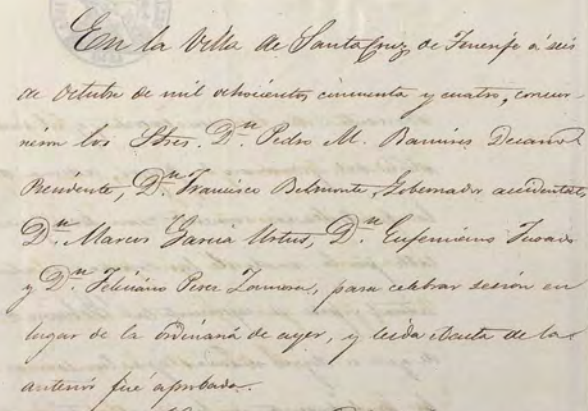 En la Villa de Santa Cruz de Tenerife á seis
de Octubre de mil ochocientos cincuenta y cuatro, concur-
rieron los Stres. D.n Pedro M. Ramires Decano
Presidente, D.n Francisco Belmonte, Gobernador accidental,
D.n Marcos Garcia D.n Eufemiano Jurado
y D.n Feliciano Perez Zamora, para celebrar sesión en
lugar de la ordinaria de ayer, y leida el acta de la
anterior fué aprobada.